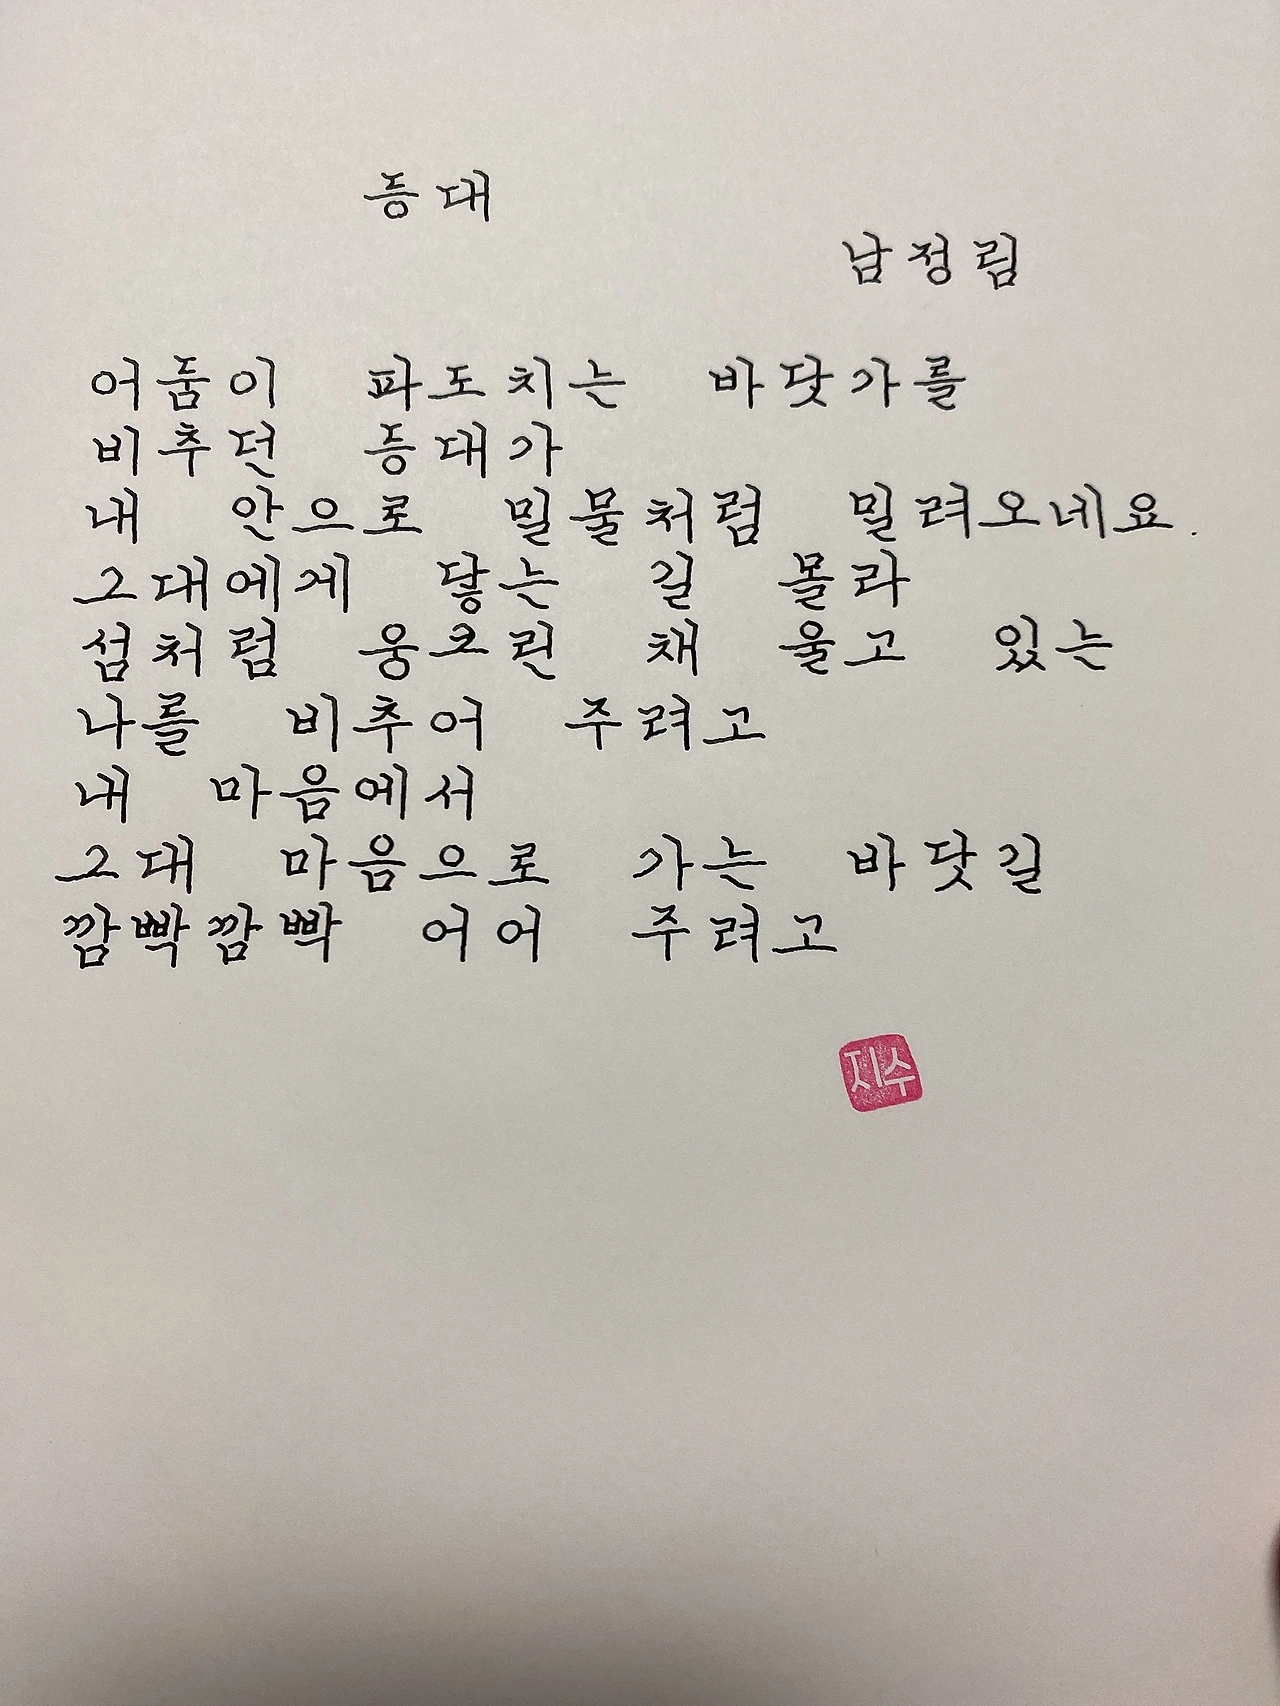 등대
남정림
어둠이 파도치는 바닷가를
비추던 등대가
내 안으로 밀물처럼 밀려오네요.
그대에게 닿는 길 몰라
섬처럼 웅크린 채 울고 있는
나를 비추어 주려고
내 마음에서
그대 마음으로 가는 바닷길
깜빡깜빡 어어 주려고
지수